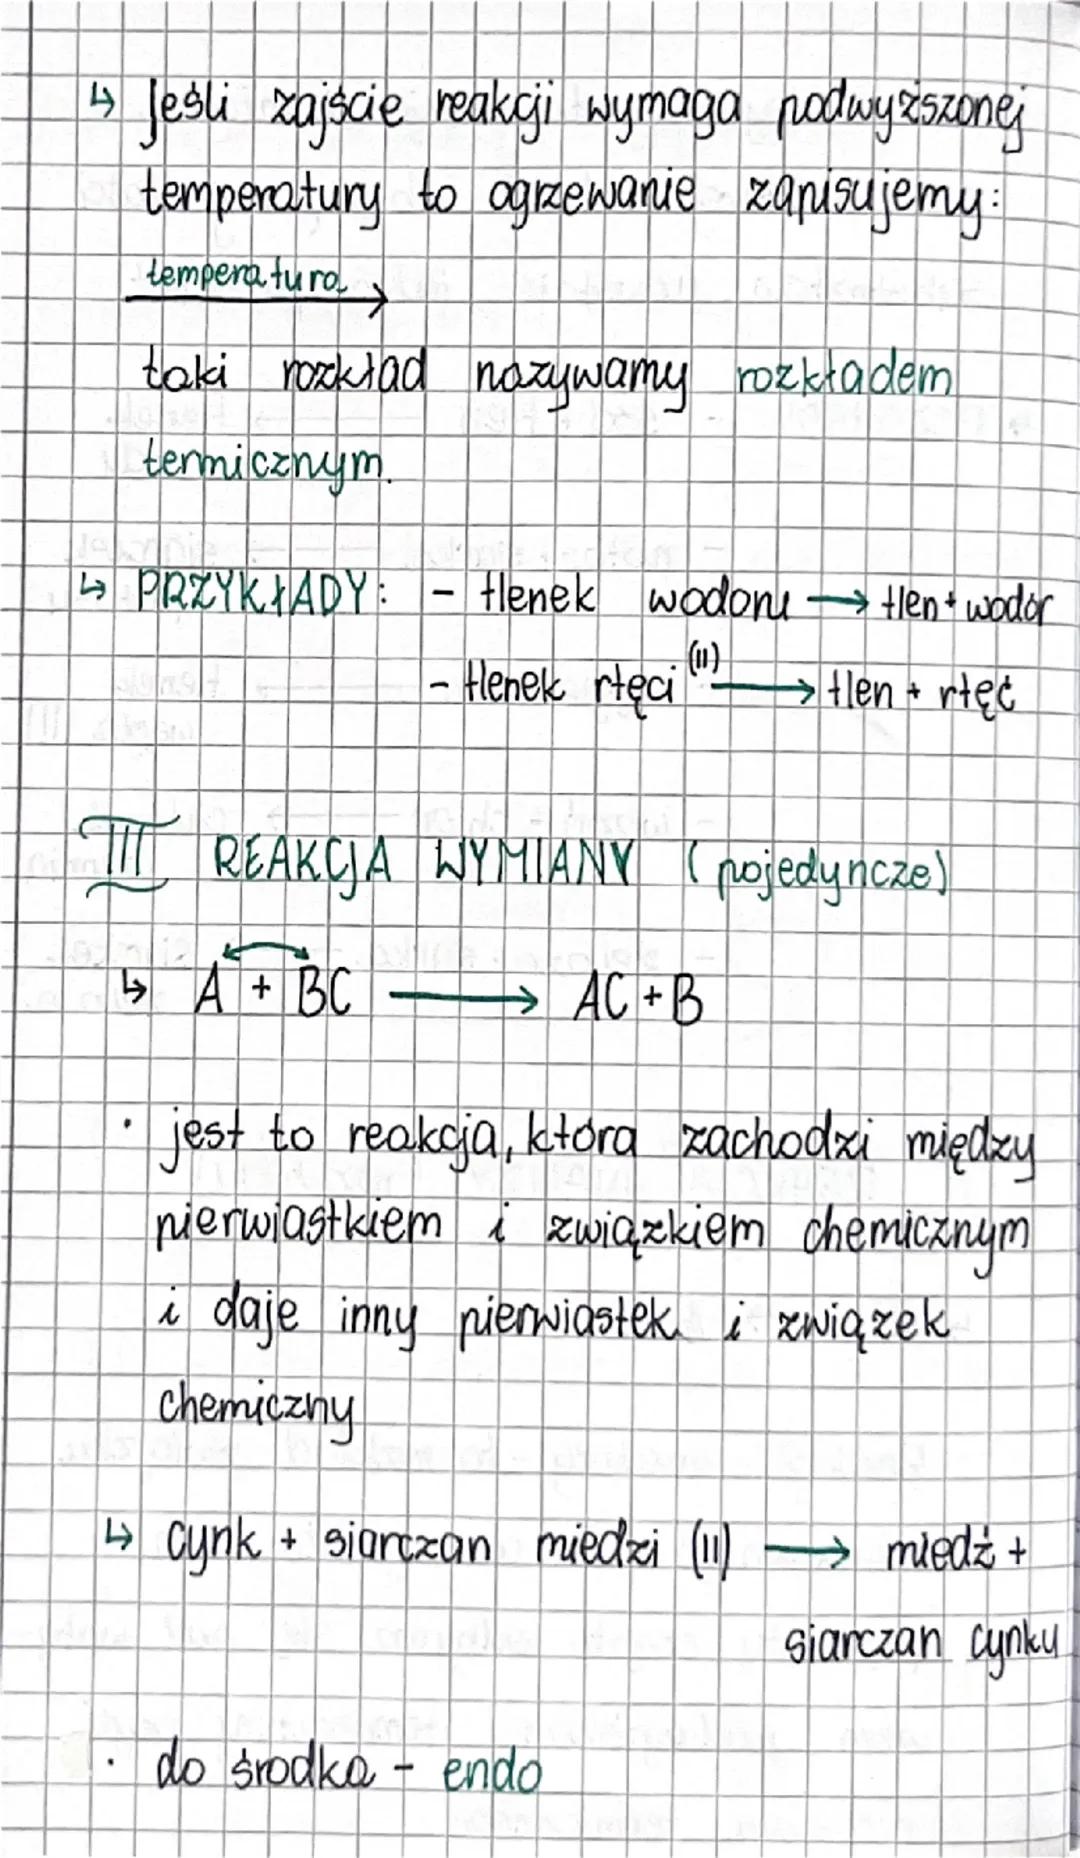 ↳ jeśli zajście reakcji wymaga podwyższonej
temperatury to ogrzewanie zapisujemy:
temperatura →
taki rozkład nazywamy rozkładem
termicznym.
↳ PRZYKŁADY: - tlenek wodoru → tlen + wodór
- tlenek rtęci (II) → tlen + rtęć
III REAKCJA WYMIANY (pojedyncze)
↳ A + BC → AC + B
• jest to reakcja, która zachodzi między
pierwiastkiem i związkiem chemicznym
i daje inny pierwiastek i związek
chemiczny
↳ cynk + siarczan miedzi (II) → miedź +
siarczan cynku
• do środka - endo